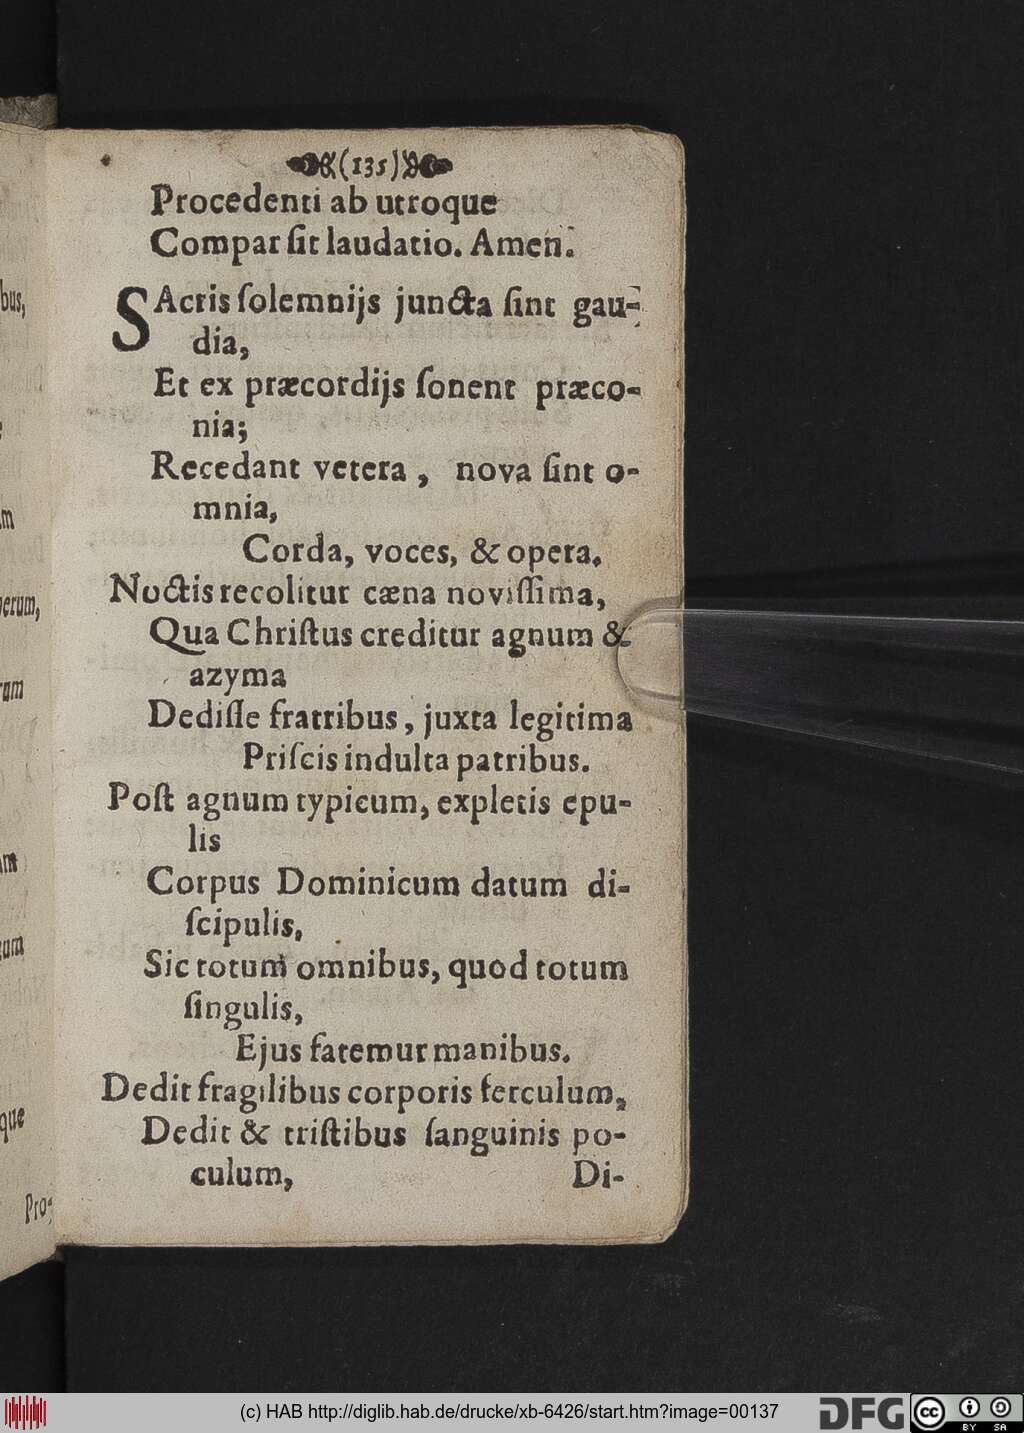 (135)
Procedenti ab utroque
Compar ſit laudatio. Amen.
SAcris ſolemnijs juncta ſint gau-
dia,
Et ex præcordijs ſonent præco-
nia;
Recedant vetera, nova ſint o-
mnia,
Corda, voces, & opera.
Noctis recolitur cæna noviſſima,
Qua Chriſtus creditur agnum &
azyma
Dediſſe fratribus, juxta legitima
Priſcis indulta patribus.
Poſt agnum typicum, expletis epu-
lis
Corpus Dominicum datum di-
ſcipulis,
Sic totum omnibus, quod totum
ſingulis,
Ejus fatemur manibus.
Dedit fragilibus corporis ferculum,
Dedit & triſtibus ſanguinis po-
culum,
Di-
bus,
perum,
que
Pro-
(c) HAB http://diglib.hab.de/drucke/xb-6426/start.htm?image=00137
DFG
cc
BY
SA